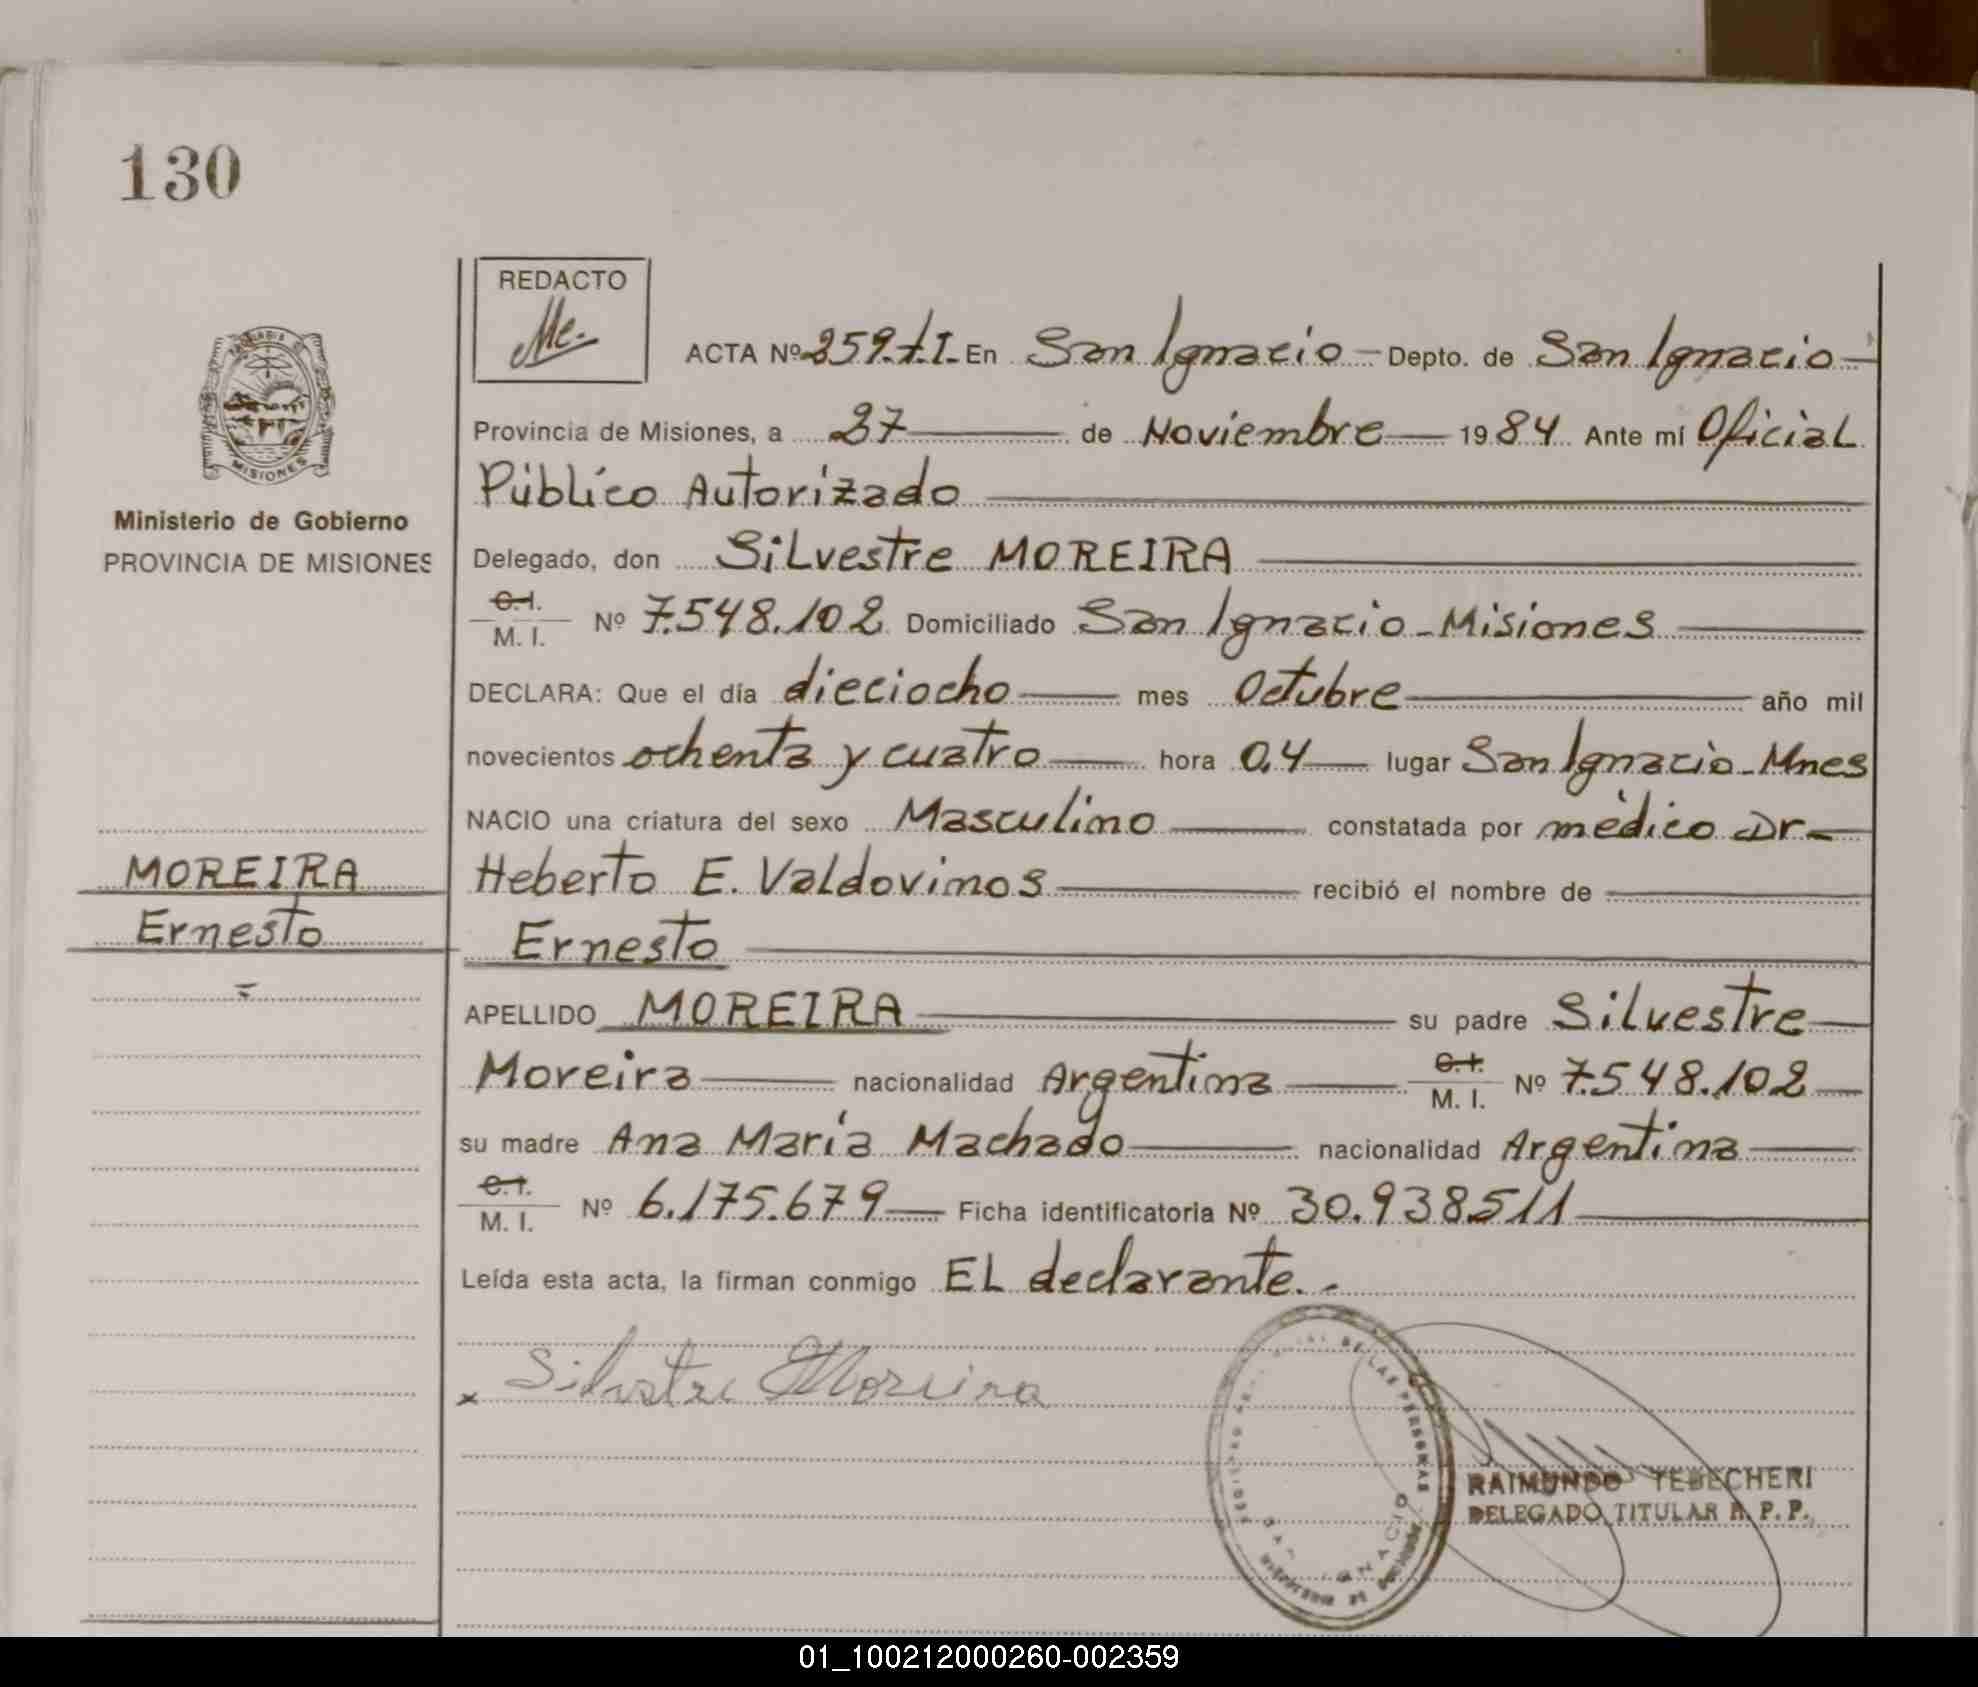 130
REDACTO
Me.
ACTA Nº 259.-t.I.- En San Ignacio - Depto. de San Ignacio -
Provincia de Misiones, a 27 de Noviembre 1984 Ante mí Oficial
Público Autorizado
Delegado, don Silvestre MOREIRA
C.I.
M. I. Nº 7.548.102 Domiciliado San Ignacio - Misiones
DECLARA: Que el día dieciocho mes Octubre año mil
novecientos ochenta y cuatro hora 0,4 lugar San Ignacio - Mnes
NACIO una criatura del sexo Masculino constatada por médico Dr.
Heberto E. Valdovinos recibió el nombre de
Ernesto
APELLIDO MOREIRA su padre Silvestre
Moreira nacionalidad Argentina C.I. M. I. Nº 7.548.102
su madre Ana María Machado nacionalidad Argentina
C.I.
M. I. Nº 6.175.679 Ficha identificatoria Nº 30.938.511
Leída esta acta, la firman conmigo EL declarante.-
x Silvestre Moreira
MISIONES
Ministerio de Gobierno
PROVINCIA DE MISIONES
MOREIRA
Ernesto
DE LAS PERSONAS
RAIMUNDO TEBECHERI
DELEGADO TITULAR R. P. P.
01_100212000260-002359